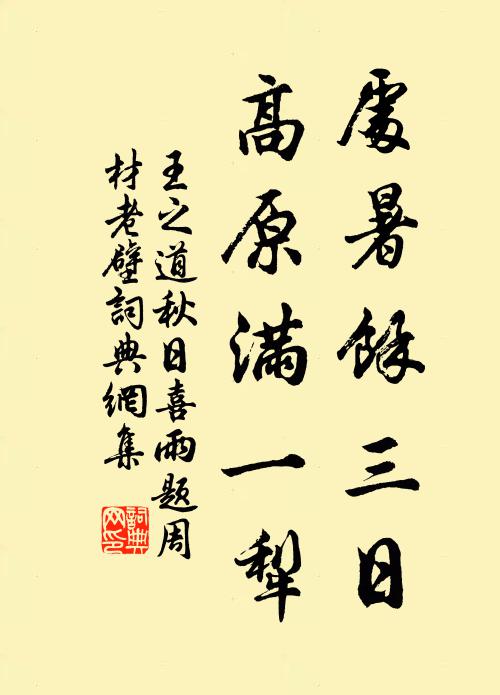 處暑餘三日
高原滿一犁
王之道秋日喜雨題周
材老壁詞典網集
詞典
网印